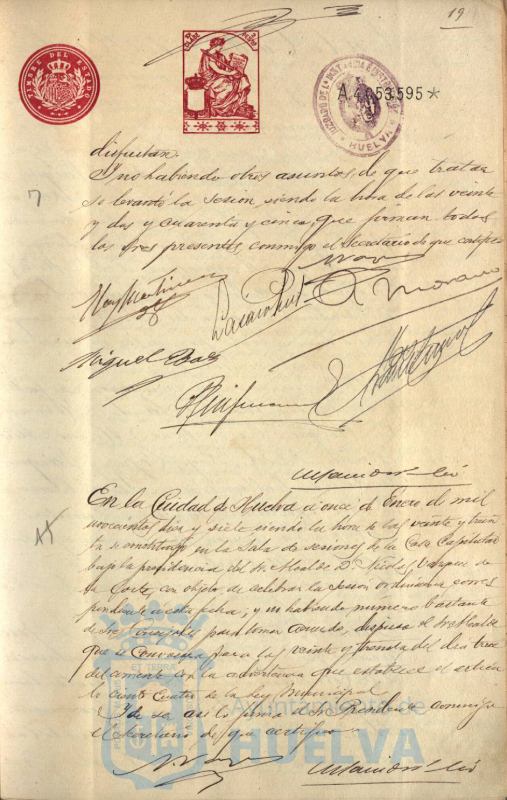 19
TIMBRE DEL ESTADO
CLASE
A.4.053.595*
HUELVA
disfrutan.
Y no habiendo otros asuntos de que tratar
se levantó la sesion, siendo la hora de las veinte
y dos y cuarenta y cinco, que firman todos
los Sres presentes, conmigo el secretario de que certifico
A. Moreno
Miguel Baez
En la Ciudad de Huelva á once de Enero de mil
novecientos diez y siete siendo la hora de las veinte y trein
ta se constituyó en la Sala de sesiones de la Casa Capitular
bajo la presidencia del Sr. Alcalde Dn. Nicolas Vazquez de
la Corte, con objeto de celebrar la sesion ordinaria corres
pondiente a esta fecha; y no habiendo número bastante
de Sres Concejales para tomar acuerdo, dispuso el Sr Alcalde
que se convocara para las veinte y treinta del dia trece
del corriente con la advertencia que establece el articu
lo ciento cuatro de la ley Municipal
Y de ser asi lo firma el Sr. Presidente conmigo
el Secretario de que certifico
Ayuntamiento de
HUELVA